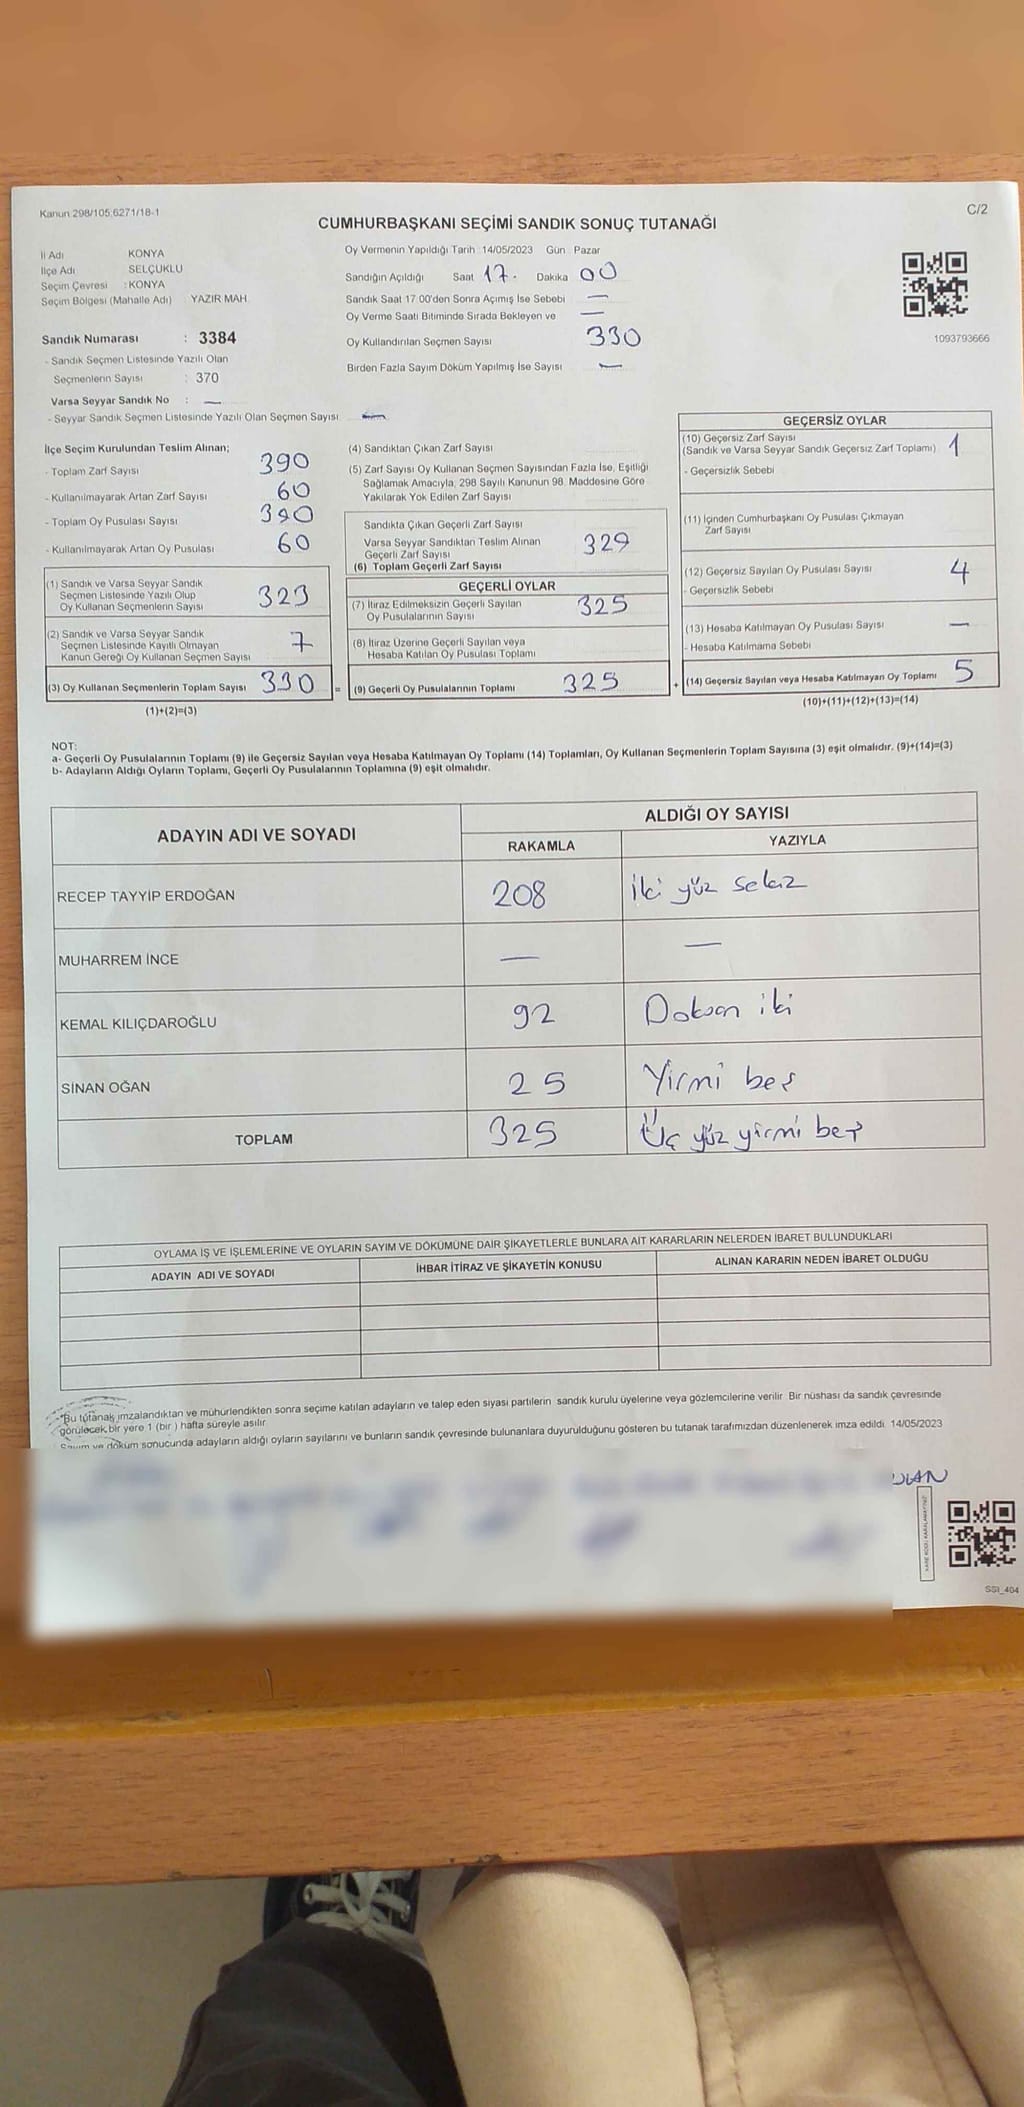 Kanun 298/105,6271/18-1
C/2
CUMHURBAŞKANI SEÇİMİ SANDIK SONUÇ TUTANAĞI
İl Adı KONYA
İlçe Adı SELÇUKLU
Seçim Çevresi : KONYA
Seçim Bölgesi (Mahalle Adı) YAZIR MAH.
Sandık Numarası : 3384
- Sandık Seçmen Listesinde Yazılı Olan
Seçmenlerin Sayısı : 370
Varsa Seyyar Sandık No : —
- Seyyar Sandık Seçmen Listesinde Yazılı Olan Seçmen Sayısı —
Oy Vermenin Yapıldığı Tarih :14/05/2023 Gün Pazar
Sandığın Açıldığı Saat 17. Dakika 00
Sandık Saat 17:00'den Sonra Açımış İse Sebebi —
Oy Verme Saati Bitiminde Sırada Bekleyen ve —
Oy Kullandırılan Seçmen Sayısı 330
Birden Fazla Sayım Döküm Yapılmış İse Sayısı —
1093793666
İlçe Seçim Kurulundan Teslim Alınan;
- Toplam Zarf Sayısı 390
- Kullanılmayarak Artan Zarf Sayısı 60
- Toplam Oy Pusulası Sayısı 390
- Kullanılmayarak Artan Oy Pusulası 60
(1) Sandık ve Varsa Seyyar Sandık
Seçmen Listesinde Yazılı Olup
Oy Kullanan Seçmenlerin Sayısı 323
(2) Sandık ve Varsa Seyyar Sandık
Seçmen Listesinde Kayıtlı Olmayan
Kanun Gereği Oy Kullanan Seçmen Sayısı 7
(3) Oy Kullanan Seçmenlerin Toplam Sayısı 330 =
(1)+(2)=(3)
(4) Sandıktan Çıkan Zarf Sayısı
(5) Zarf Sayısı Oy Kullanan Seçmen Sayısından Fazla İse, Eşitliği
Sağlamak Amacıyla, 298 Sayılı Kanunun 98. Maddesine Göre
Yakılarak Yok Edilen Zarf Sayısı
Sandıkta Çıkan Geçerli Zarf Sayısı
Varsa Seyyar Sandıktan Teslim Alınan
Geçerli Zarf Sayısı
(6) Toplam Geçerli Zarf Sayısı 329
GEÇERLİ OYLAR
(7) İtiraz Edilmeksizin Geçerli Sayılan
Oy Pusulalarının Sayısı 325
(8) İtiraz Üzerine Geçerli Sayılan veya
Hesaba Katılan Oy Pusulası Toplamı
(9) Geçerli Oy Pusulalarının Toplamı 325 +
GEÇERSİZ OYLAR
(10) Geçersiz Zarf Sayısı
(Sandık ve Varsa Seyyar Sandık Geçersiz Zarf Toplamı) 1
- Geçersizlik Sebebi
(11) İçinden Cumhurbaşkanı Oy Pusulası Çıkmayan
Zarf Sayısı
(12) Geçersiz Sayılan Oy Pusulası Sayısı 4
- Geçersizlik Sebebi
(13) Hesaba Katılmayan Oy Pusulası Sayısı —
- Hesaba Katılmama Sebebi
(14) Geçersiz Sayılan veya Hesaba Katılmayan Oy Toplamı 5
(10)+(11)+(12)+(13)=(14)
NOT:
a- Geçerli Oy Pusulalarının Toplamı (9) ile Geçersiz Sayılan veya Hesaba Katılmayan Oy Toplamı (14) Toplamları, Oy Kullanan Seçmenlerin Toplam Sayısına (3) eşit olmalıdır. (9)+(14)=(3)
b- Adayların Aldığı Oyların Toplamı, Geçerli Oy Pusulalarının Toplamına (9) eşit olmalıdır.
ADAYIN ADI VE SOYADI ALDIĞI OY SAYISI
RAKAMLA YAZIYLA
RECEP TAYYİP ERDOĞAN 208 İki yüz sekiz
MUHARREM İNCE — —
KEMAL KILIÇDAROĞLU 92 Doksan iki
SİNAN OĞAN 25 Yirmi beş
TOPLAM 325 Üç yüz yirmi beş
OYLAMA İŞ VE İŞLEMLERİNE VE OYLARIN SAYIM VE DÖKÜMÜNE DAİR ŞİKAYETLERLE BUNLARA AİT KARARLARIN NELERDEN İBARET BULUNDUKLARI
ADAYIN ADI VE SOYADI İHBAR İTİRAZ VE ŞİKAYETİN KONUSU ALINAN KARARIN NEDEN İBARET OLDUĞU
*Bu tutanak imzalandıktan ve mühürlendikten sonra seçime katılan adayların ve talep eden siyasi partilerin sandık kurulu üyelerine veya gözlemcilerine verilir. Bir nüshası da sandık çevresinde
görülecek bir yere 1 (bir ) hafta süreyle asılır.
Sayım ve döküm sonucunda adayların aldığı oyların sayılarını ve bunların sandık çevresinde bulunanlara duyurulduğunu gösteren bu tutanak tarafımızdan düzenlenerek imza edildi. 14/05/2023
SSI_404